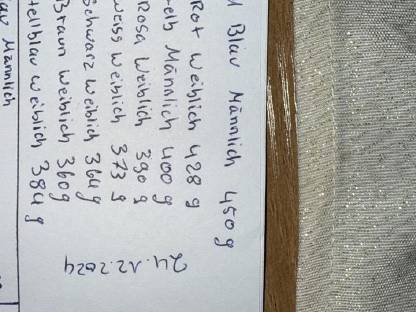 Blau Männlich 450g
Rot Weiblich 428 g
Männlich 400 g
Rosa Weiblich 390 g
Weiss Weiblich 373 g
Schwarz Weiblich 364 g
Braun Weiblich 360g
Hellblau Weiblich 384 g
Männlich
24.12.2024